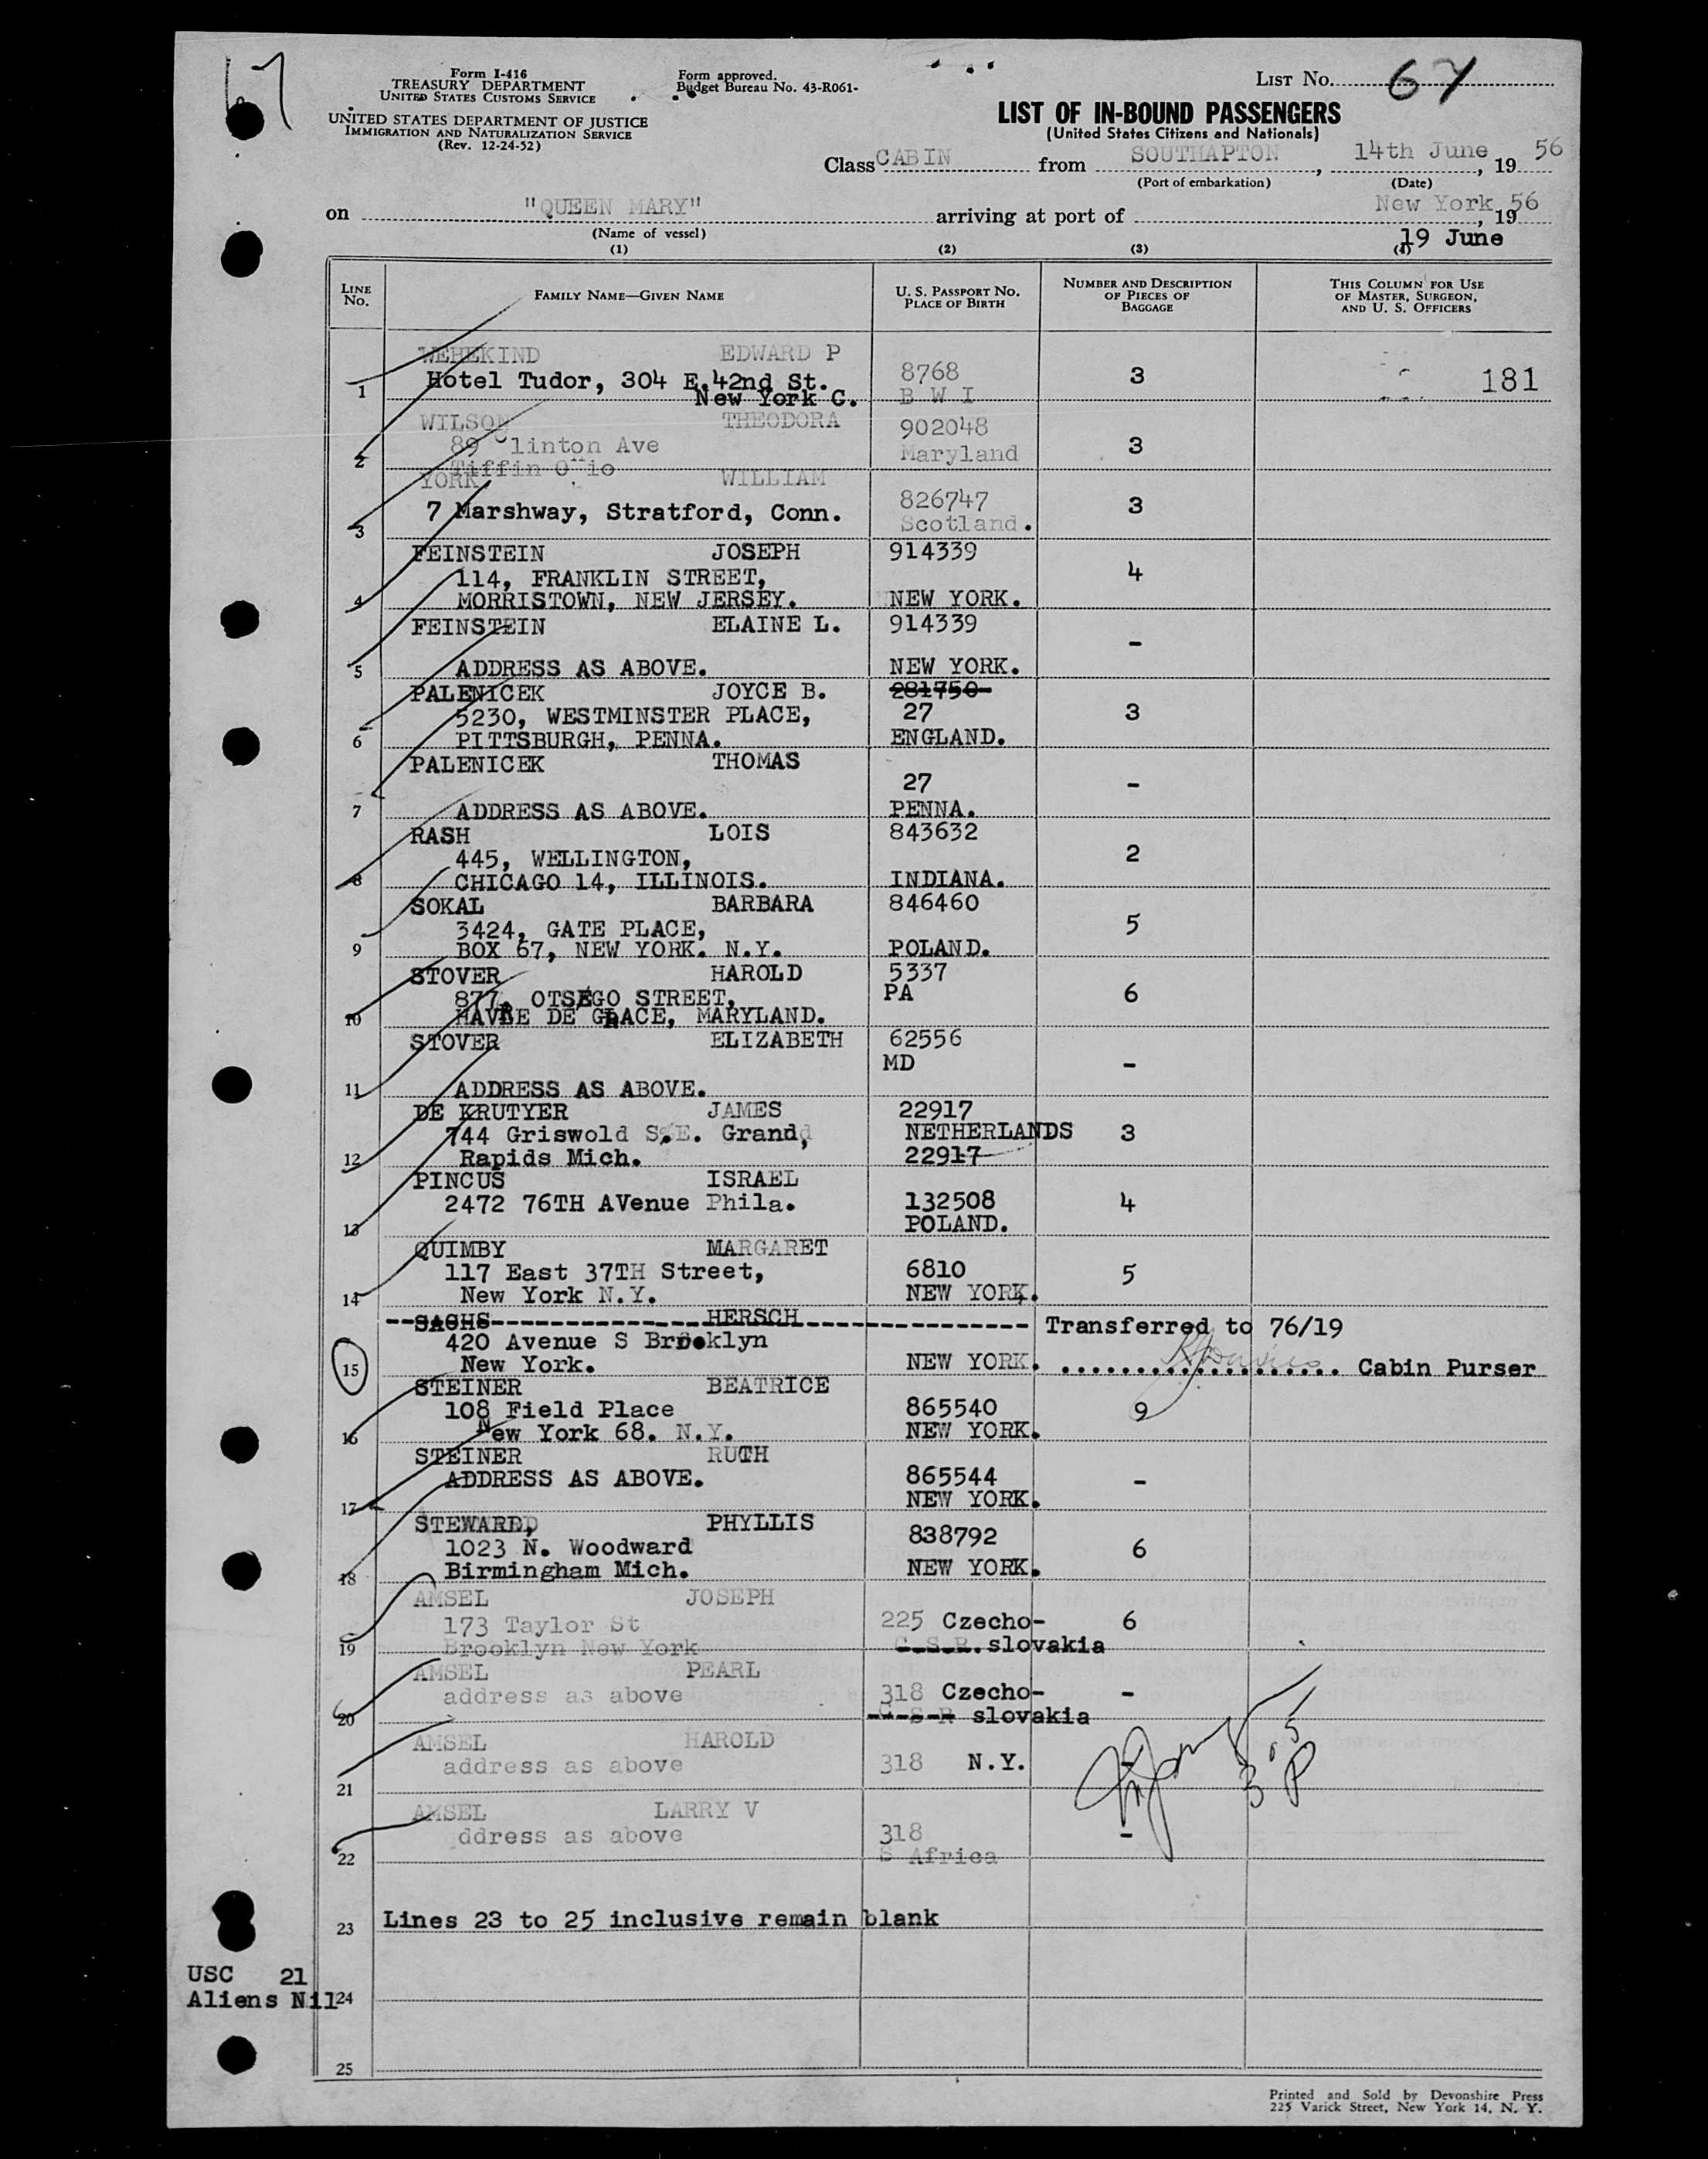 Form I-416
TREASURY DEPARTMENT
UNITED STATES CUSTOMS SERVICE
UNITED STATES DEPARTMENT OF JUSTICE
IMMIGRATION AND NATURALIZATION SERVICE
(Rev. 12-24-52)
Form approved.
Budget Bureau No. 43-R061-
LIST No. 67
LIST OF IN-BOUND PASSENGERS
(United States Citizens and Nationals)
Class CABIN from SOUTHAPTON, 14th June, 19 56
(Port of embarkation) (Date)
on "QUEEN MARY" arriving at port of New York, 19 56
(Name of vessel)
19 June
(1) (2) (3) (4)
LINE No. FAMILY NAME—GIVEN NAME U. S. PASSPORT No. PLACE OF BIRTH NUMBER AND DESCRIPTION OF PIECES OF BAGGAGE THIS COLUMN FOR USE OF MASTER, SURGEON, AND U. S. OFFICERS
WEHEKIND EDWARD P 8768
1 Hotel Tudor, 304 E.42nd St. 3 181
New York C. B W I
WILSON THEODORA 902048
89 Clinton Ave Maryland 3
2 Tiffin Ohio
YORK WILLIAM 826747
3 7 Marshway, Stratford, Conn. Scotland. 3
FEINSTEIN JOSEPH 914339
114, FRANKLIN STREET, 4
4 MORRISTOWN, NEW JERSEY. NEW YORK.
FEINSTEIN ELAINE L. 914339
-
5 ADDRESS AS ABOVE. NEW YORK.
PALENICEK JOYCE B. 281750
5230, WESTMINSTER PLACE, 27 3
6 PITTSBURGH, PENNA. ENGLAND.
PALENICEK THOMAS
27 -
7 ADDRESS AS ABOVE. PENNA.
RASH LOIS 843632
445, WELLINGTON, 2
8 CHICAGO 14, ILLINOIS. INDIANA.
SOKAL BARBARA 846460
3424, GATE PLACE, 5
9 BOX 67, NEW YORK. N.Y. POLAND.
STOVER HAROLD 5337
877, OTSEGO STREET, PA 6
10 HAVRE DE GRACE, MARYLAND.
STOVER ELIZABETH 62556
MD -
11 ADDRESS AS ABOVE.
DE KRUTYER JAMES 22917
744 Griswold S.E. Grand, NETHERLANDS 3
12 Rapids Mich. 22917
PINCUS ISRAEL
2472 76TH AVenue Phila. 132508 4
13 POLAND.
QUIMBY MARGARET
117 East 37TH Street, 6810 5
14 New York N.Y. NEW YORK.
SACHS HERSCH Transferred to 76/19
420 Avenue S Brooklyn
15 New York. NEW YORK. Cabin Purser
STEINER BEATRICE
108 Field Place 865540 9
16 New York 68. N.Y. NEW YORK.
STEINER RUTH
ADDRESS AS ABOVE. 865544 -
17 NEW YORK.
STEWARD, PHYLLIS
1023 N. Woodward 838792 6
18 Birmingham Mich. NEW YORK.
AMSEL JOSEPH
173 Taylor St 225 Czecho- 6
19 Brooklyn New York C.S.R. slovakia
AMSEL PEARL
address as above 318 Czecho- -
20 C S R slovakia
AMSEL HAROLD
address as above 318 N.Y. -
21
AMSEL LARRY V
ddress as above 318 -
22 S Africa
3.5 P
23 Lines 23 to 25 inclusive remain blank
USC 21
Aliens Nil 24
25
Printed and Sold by Devonshire Press
225 Varick Street, New York 14, N. Y.